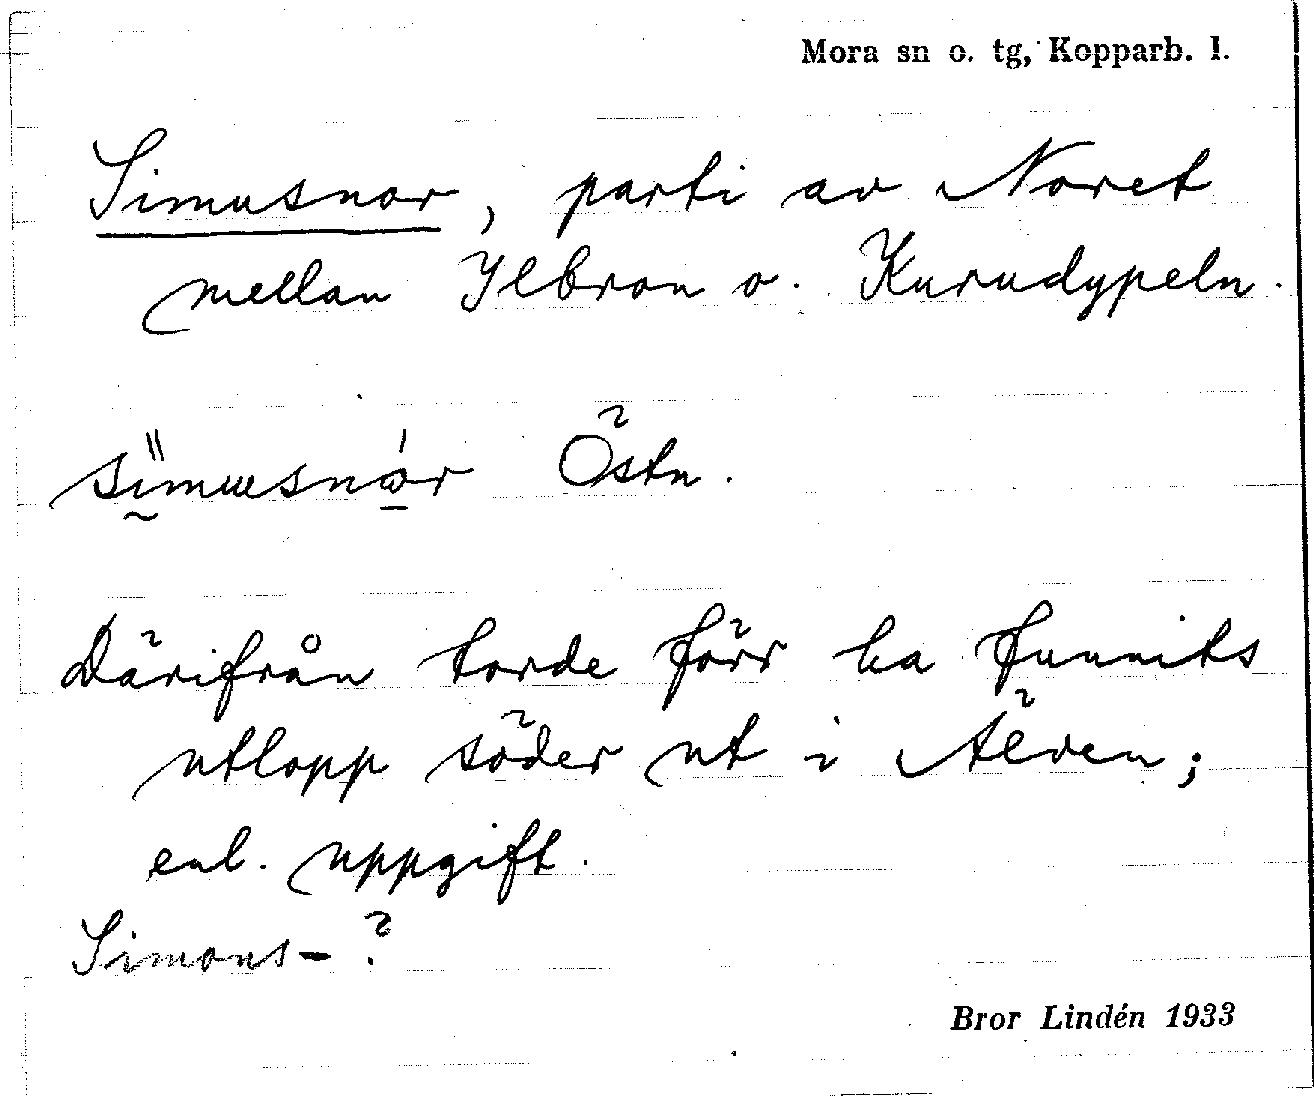 Mora sn o. tg, Kopparb. l.
Simusnor, parti av Noret
mellan Ylbron o. Kurudypeln.
simusnór Östn.
Därifrån torde förr ha funnits
utlopp söder ut i Älven;
enl. uppgift.
Simons-?
Bror Lindén 1933